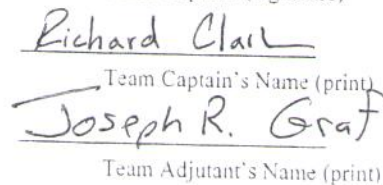 Richard Clark
Team Captain's Name (print)
Joseph R. Graf
Team Adjutant's Name (print)